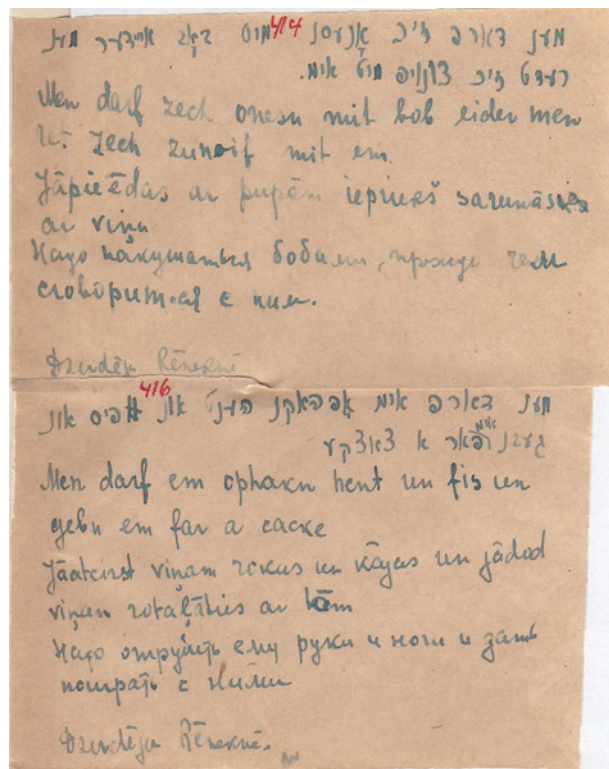 מען דארפ זיכ אָנעסן 414 מיט באָב איידער מען
רעדט זיכ צונויפ מיט אימ.
Men darf zech onesn mit bob eider men
ret zech zunoif mit em.
Jāpieēdas ar pupām iepriekš sarunāsies
ar viņu
Надо накушаться бобами, прежде чем
сговориться с ним.
Dzirdēju Rēzeknē
416
מען דארפ אימ אָפהאקן הענט און פיס און
געבן אימ פאר א צאצקע
Men darf em ophakn hent un fis un
gebn em far a cacke
Jāatcirst viņam rokas un kājas un jādod
viņam rotaļāties ar tām
Надо отрубить ему руки и ноги и дать
поиграть с ними
Dzirdēju Rēzeknē.